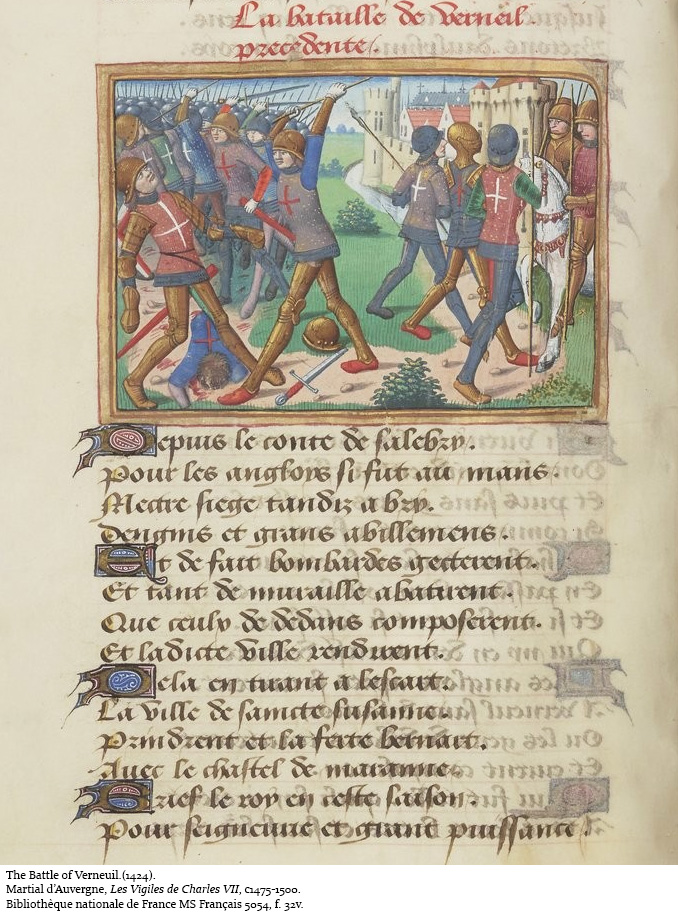 La bataille de verneil
precedente.
Depuis le conte de salebry.
Pour les angloys si fut au mans.
Mectre siege tandiz a bry.
Dengins et grans abillemens.
Et de fait bombardes gecterent.
Et tant de muraille abatirent.
Que ceulx de dedans composerent.
Et ladicte ville rendirent.
Dela en tirant a lescart.
La ville de saincte susanne.
Prindrent et la ferte bernart.
Avec le chastel de maranne.
Brief le roy en ceste saison.
Pour seigneurie et grant puissance.
The Battle of Verneuil.(1424).
Martial d'Auvergne, Les Vigiles de Charles VII, c1475-1500.
Bibliothèque nationale de France MS Français 5054, f. 32v.